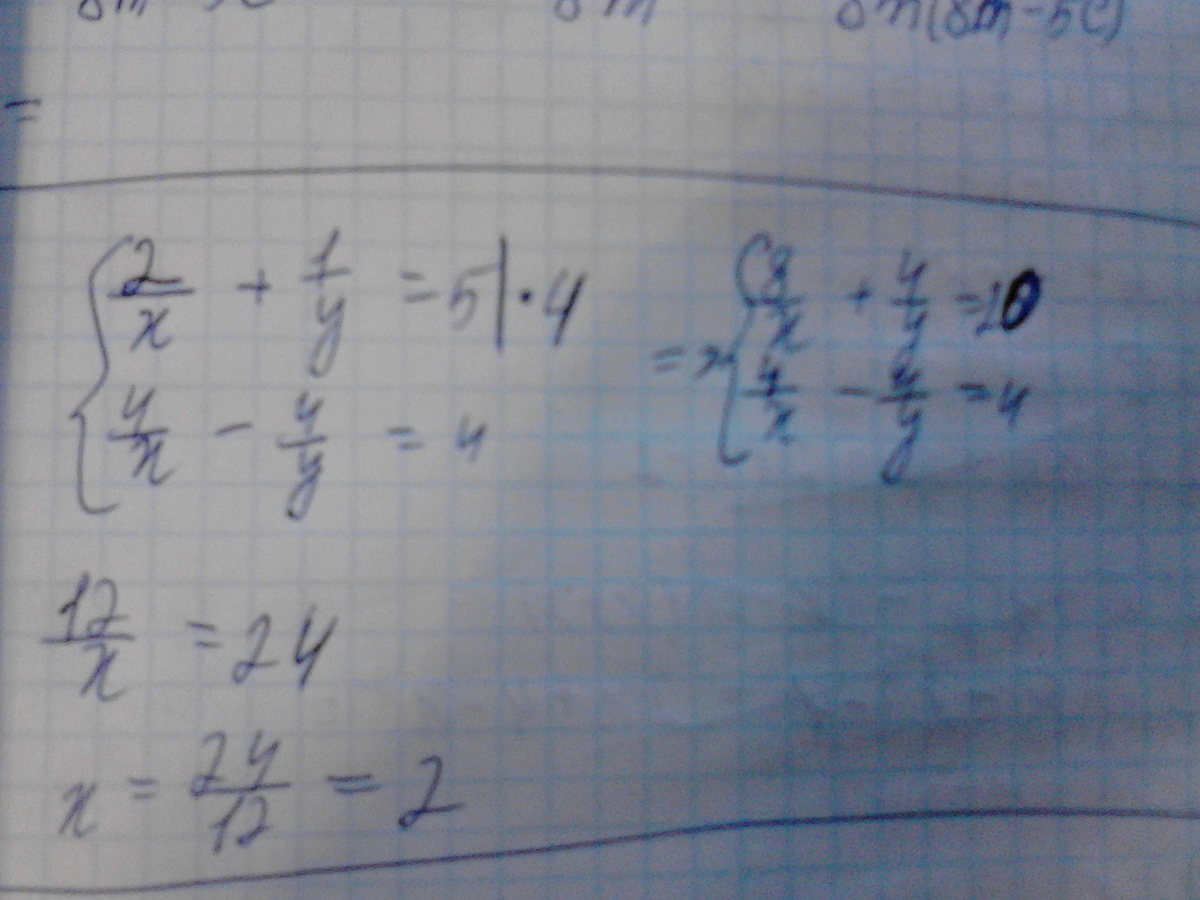 8m(8m-5c)
=
{ 2/x + 1/y = 5 | · 4
=> { 8/x + 4/y = 20
4/x - 4/y = 4
4/x - 4/y = 4
12/x = 24
x = 24/12 = 2